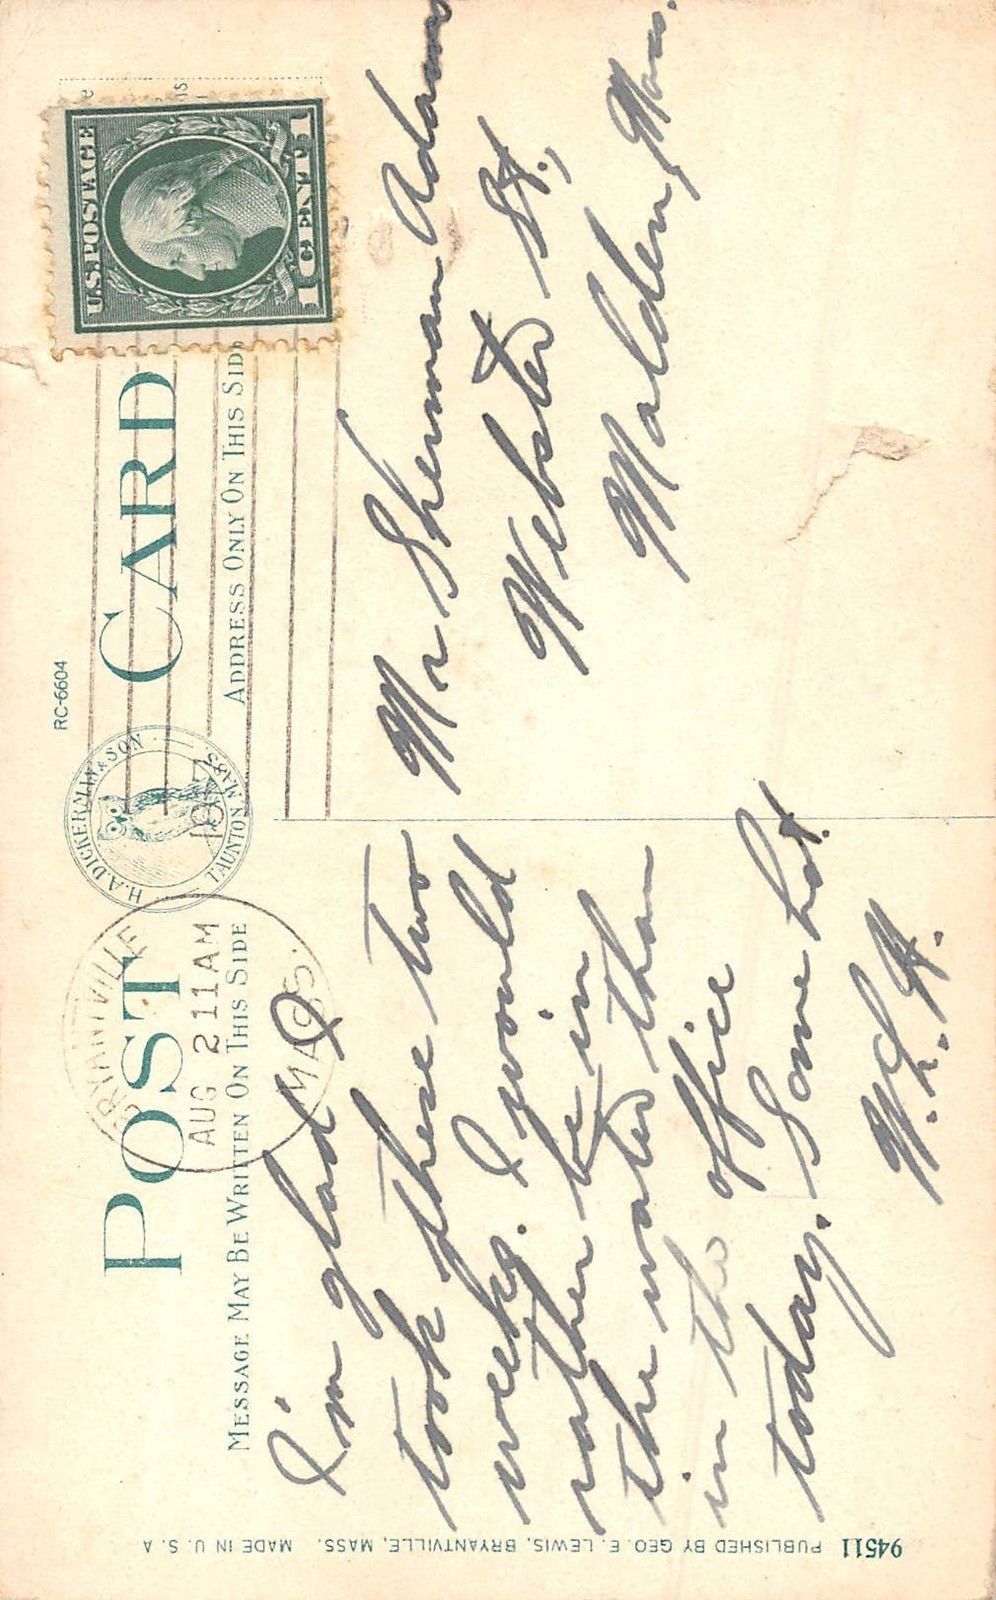 RC-6604
POST CARD
H.A. DICKERMAN & SON
TAUNTON MASS.
MESSAGE MAY BE WRITTEN ON THIS SIDE
ADDRESS ONLY ON THIS SIDE
U.S. POSTAGE
1 CENT 1
BRYANTVILLE
AUG 2 11 AM
MASS.
I'm glad I
took these two
weeks. I would
rather be in
the water than
in the office
today. Some hot.
W. L. H.
Mr Sherman Adams
Webster St.,
Malden, Mass.
94511 PUBLISHED BY GEO. E. LEWIS, BRYANTVILLE, MASS. MADE IN U. S. A